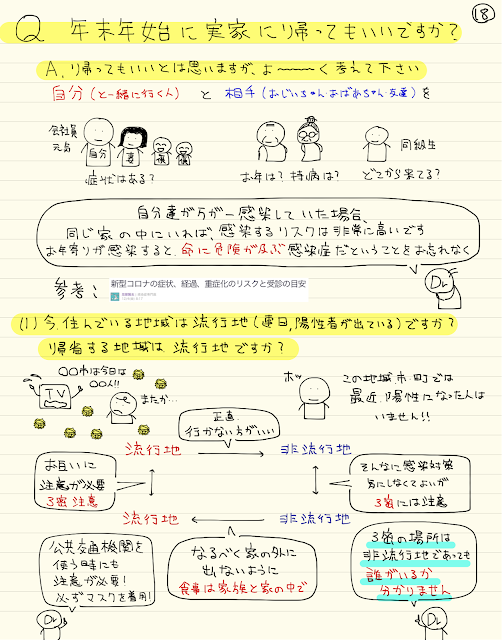 ⑱
Q 年末年始に実家に帰ってもいいですか?
A. 帰ってもいいとは思いますが、よ〜〜〜く考えて下さい
自分(と一緒に行く人) と 相手(おじいちゃん・おばあちゃん・友達)を
会社員
元気
自分
妻
子供
子供
同級生
症状はある?
お年は?持病は?
どこから来てる?
自分達が万が一感染していた場合、
同じ家の中にいれば、感染するリスクは非常に高いです
お年寄りが感染すると、命に危険が及ぶ感染症だということをお忘れなく
Dr
参考:
新型コロナの症状、経過、重症化のリスクと受診の目安
(1) 今、住んでいる地域は流行地(連日,陽性者が出ている)ですか?
帰省する地域は流行地ですか?
〇〇市は今日は
〇〇人!!
TV
またか…
ホッ
この地域・市・町では
最近、陽性になった人は
いません!!
正直
行かない方がいい
流行地
非流行地
お互いに
注意が必要
3密注意
そんなに感染対策
気にしなくてよいが
3密には注意
流行地
非流行地
公共交通機関を
使う時にも
注意が必要!
必ずマスクを着用!
なるべく家の外に
出ないように
食事は家族と家の中で
3密の場所は
非流行地であっても
誰がいるか
分かりません
Dr
Dr